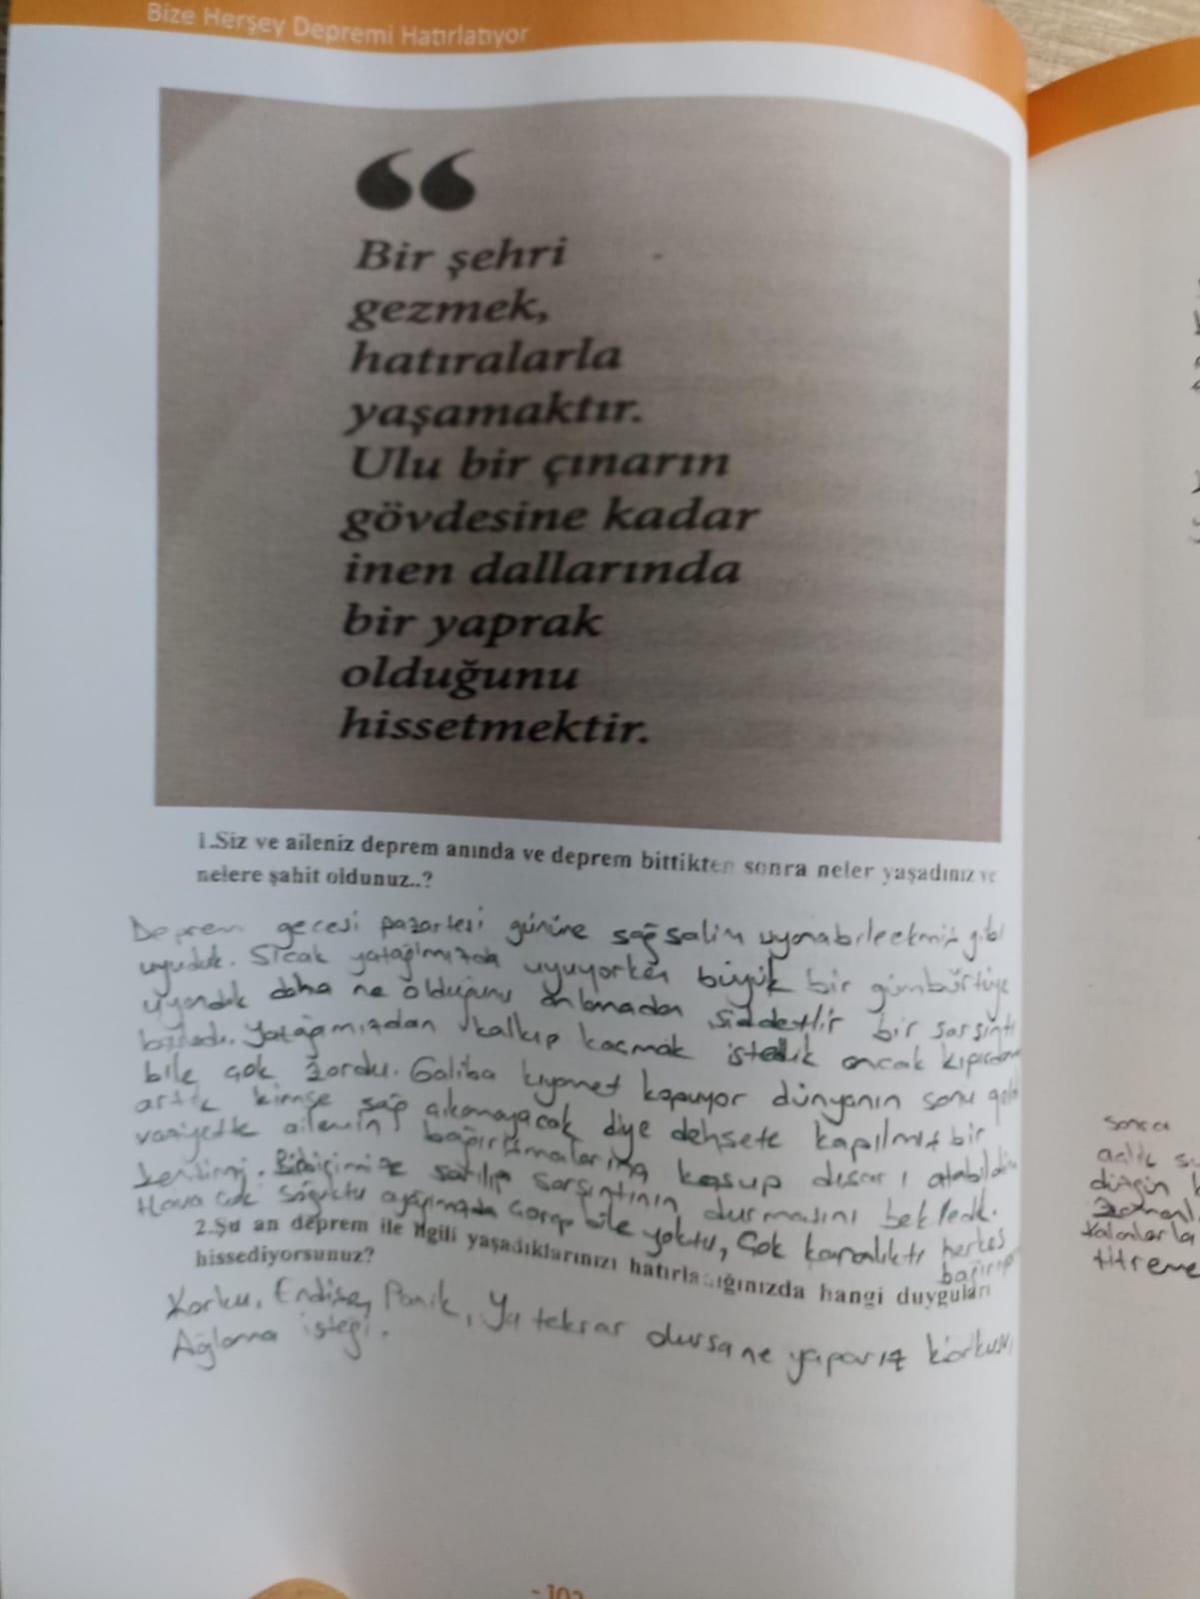 Bize Herşey Depremi Hatırlatıyor
“
Bir şehri
gezmek,
hatıralarla
yaşamaktır.
Ulu bir çınarın
gövdesine kadar
inen dallarında
bir yaprak
olduğunu
hissetmektir.
1.Siz ve aileniz deprem anında ve deprem bittikten sonra neler yaşadınız ve
nelere şahit oldunuz..?
Deprem gecesi pazartesi gününe sağ salim uyanabilecekmiş gibi
uyuduk. Sıcak yatağımızda uyuyorken büyük bir gümbürtüye
uyandık daha ne olduğunu anlamadan şiddetlir bir sarsıntı
başladı. Yatağamızdan kalkıp kaçmak istedik ancak
bile çok zordu. Galiba kıyamet kopuyor dünyanın sonu
artık kimse sağ çıkamayacak diye dehşete kapılmış bir
vaziyette ailemin bağırışmalarına koşup dışarı atabildim
kendimi. Birbirimize sarılıp sarsıntının durmasını bekledik.
Hava çok soğuktu ayağımızda çorap bile yoktu, Çok karanlıktı herkes
2.Şu an deprem ile ilgili yaşadıklarınızı hatırladığınızda hangi duyguları
hissediyorsunuz?
Korku, Endişe, Panik, Ya tekrar olursa ne yaparız korkusu
Ağlama isteği.
sonra
titreme